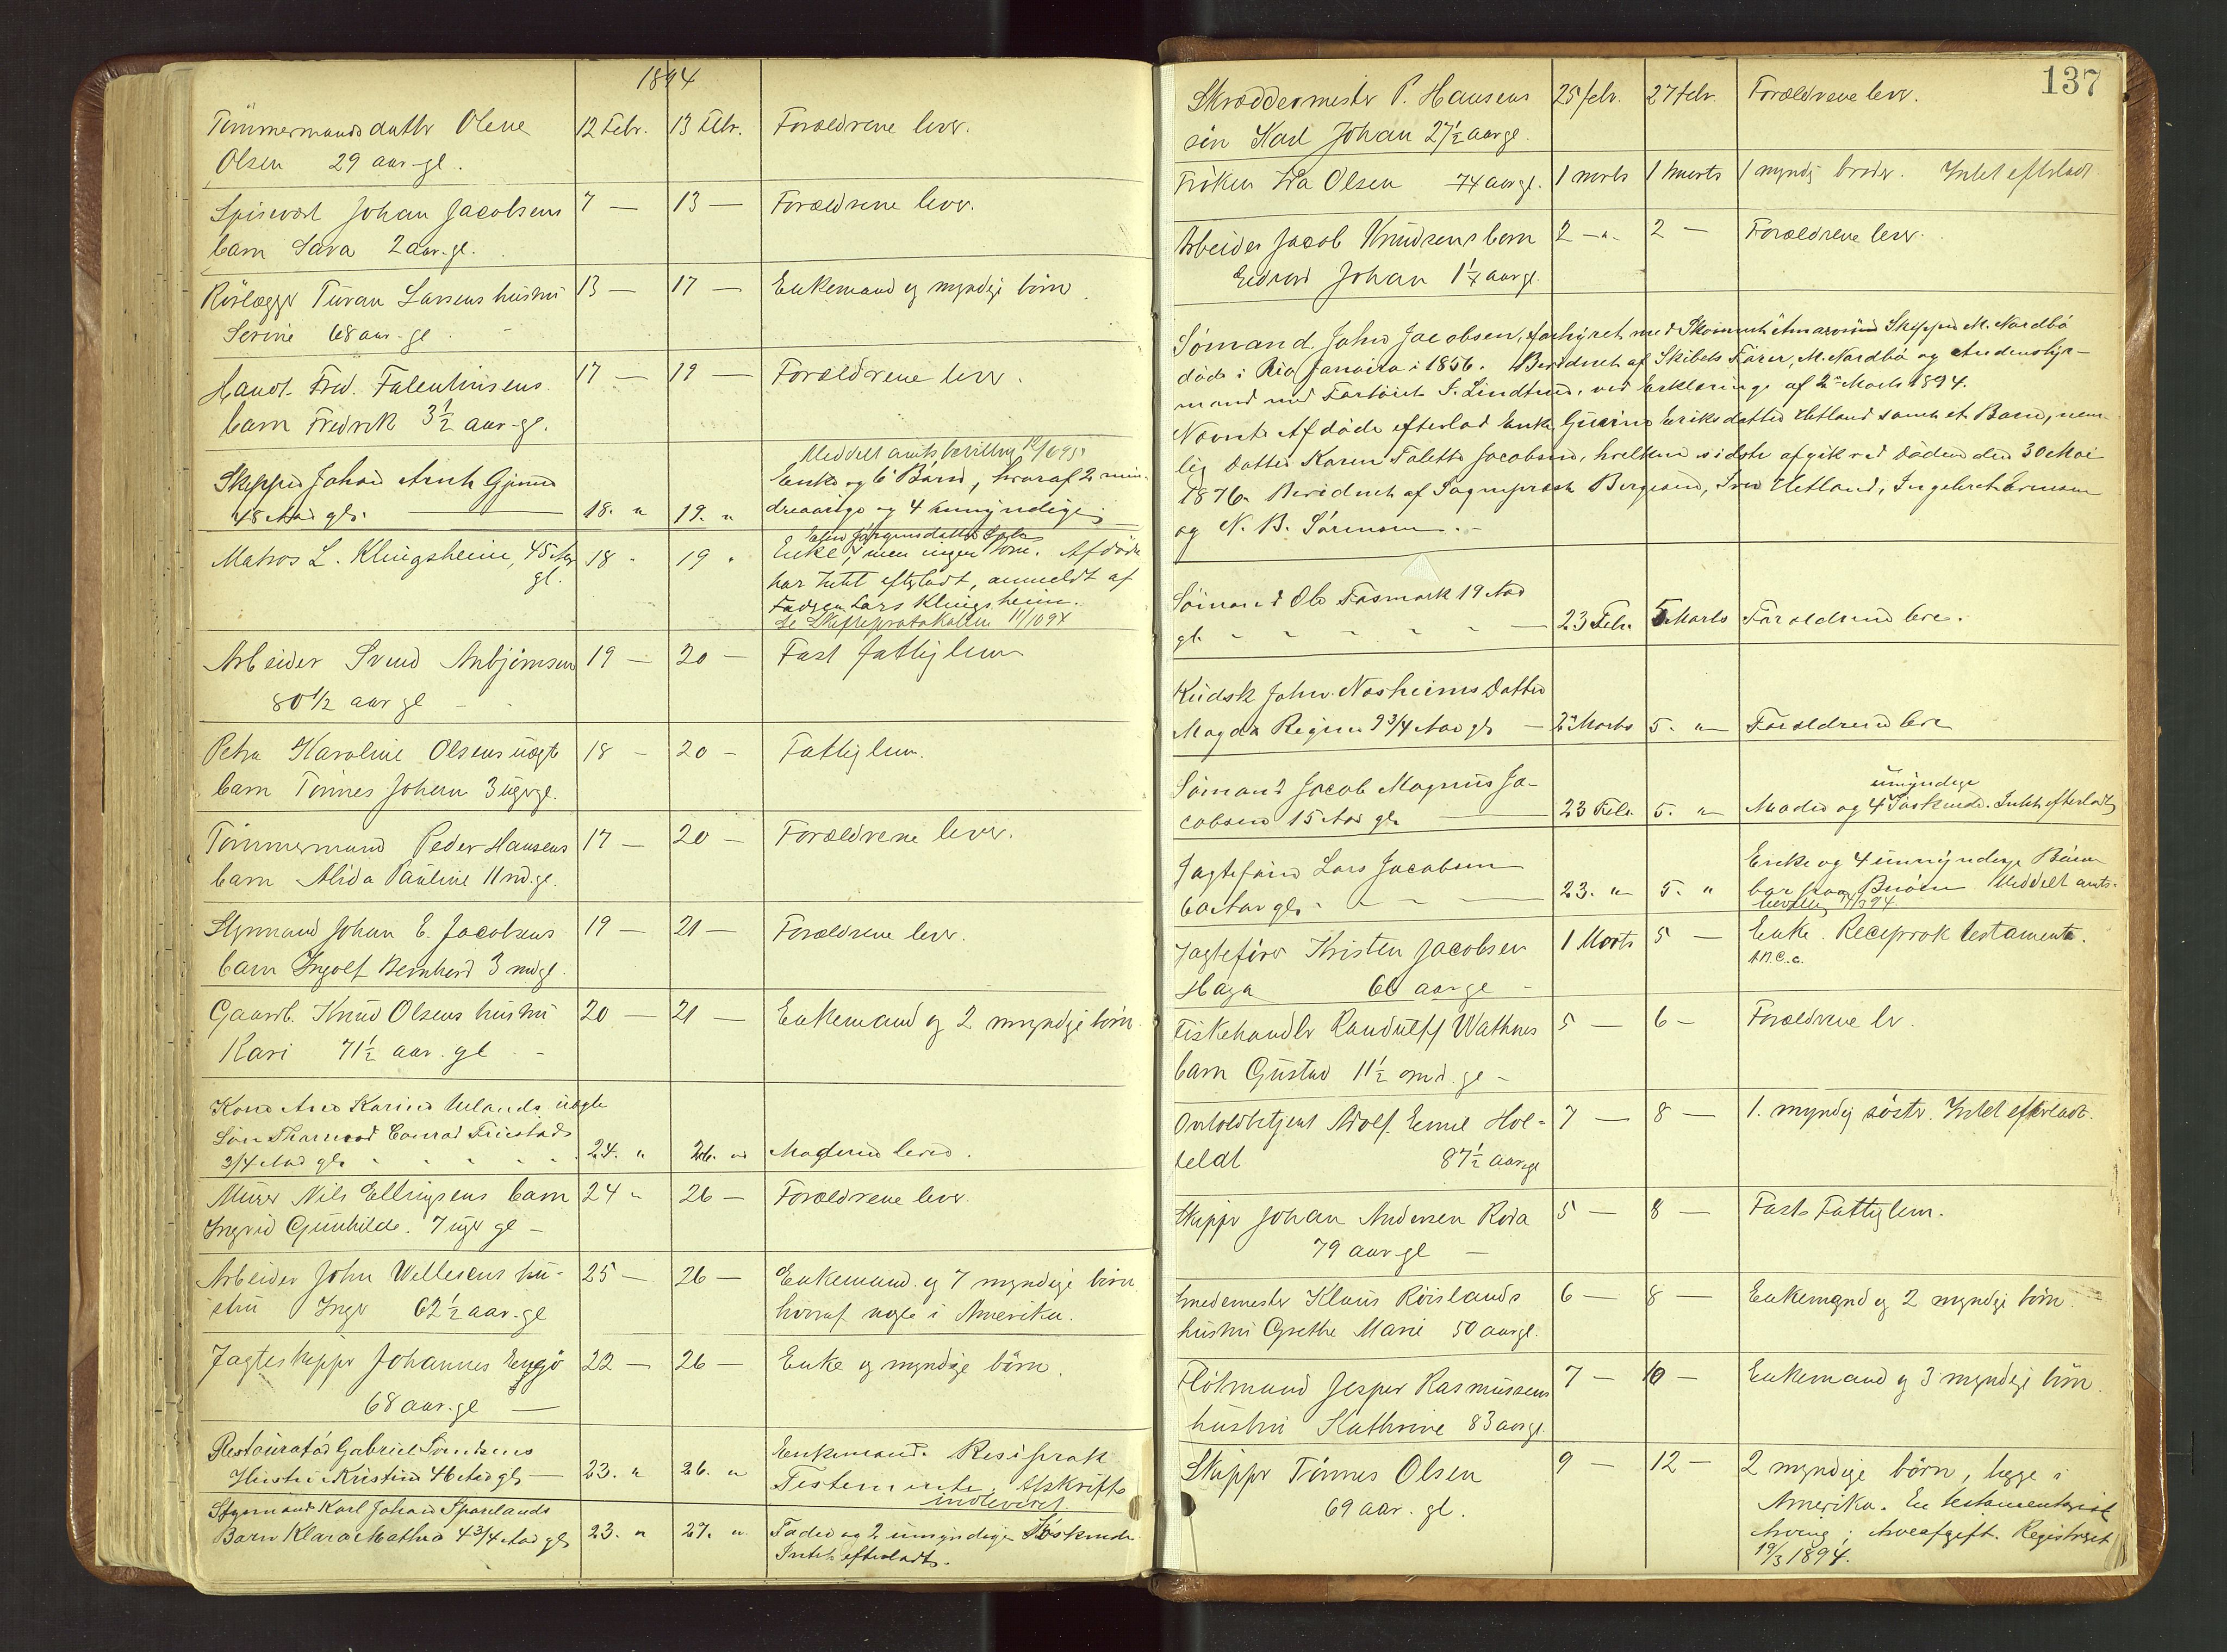 1894
Tömmermands datter Olene 12 Febr. 13 Febr. Forældrene lever.
Olsen 29 aar gl.
Spisevært Johan Jacobsens 7 — 13 — Forældrene lever.
barn Sara 2 aar. gl.
Rörlægger Larsens hustru 13 — 17 — Enkemand og myndige börn
Serine 68 aar gl
Handl. Fred. Falentinsens 17 — 19 — Forældrene lever.
barn Fredrik 3½ aar gl.
Meddelt amts bevilling
Skipper Johan Arnt Enke og 6 Börn, hvoraf 2 min-
48 Aar gl. 18. " 19. " dreaarige og 4 umyndige
Matros L. Klingsheim, 45 Aar 18 " 19 " Enke, men ingen börn. Afdöde
gl. har Intet efterladt, anmeldt af
Fadren Lars Klingsheim.
Se Skifteprotokollen 11/10 94
Arbeider Svend Anbjörnsen 19 — 20 — Fast fattiglem
80 1/2 aar gl —
Petra Karoline Olsens uægte 18 — 20 — Fattiglem.
barn Tönnes Johan 3 uger gl.
Tömmermand Peder Hansens 17 — 20 — Forældrene lever.
barn Alida Pauline 11 md. gl.
Styrmand Johan E. Jacobsens 19 — 21 — Forældrene lever.
barn Ingolf Bernhard 3 md gl.
Gaardb. Knud Olsens hustru 20 — 21 — Enkemand og 2 myndige börn.
Kari 71½ aar. gl —
Kone Ane Karine uægte
Sön Conrad
3/4 Aar gl. 24. " 26. " Moderen lever.
Murer Nils Ellingsens barn 24 " 26 — Forældrene lever.
Ingrid Gunhilde. 7 uger gl —
Arbeider John Wellesens hu- 25 — 26 — Enkemand og 7 myndige börn
stru Inger 62½ aar. gl hvoraf nogle i Amerika.
Jagteskipper Johannes Engö 22 — 26 — Enke og myndige börn.
68 aar. gl —
Restauratör Gabriel Svendsens Enkemand. Resiprok
Hustru Kristine 46 Aar gl — 23. " 26. " Testemente. Afskrift
indleveret.
Styrmand Karl Johan
Barn Klara Mathea 4 3/4 Aar gl 23. " 27. " Fader og 2 umyndige Söskende
Intet efterladt.
137
Skræddermester P. Hansens 25 febr. 27 febr. Forældrene lever.
sön Karl Johan 27½ aar gl.
Fröken Olsen 74 aar gl. 1 marts 1 marts 1 myndig broder. Intet efterladt
Arbeider Jacob Knudsens barn 2 — " 2 — Forældrene lever.
Johan 1¼ aar gl.
Sömand John Jacobsen, forhyret med Skipper M. Nordbö
döde i Rio Janeiro i 1856. Bevidnet af Skibets Förer, M. Nordbö og Andenstyr-
mand med Fartöiet Lindtner, ved Erklæringe af 2. Marts 1894.
Nævnte Afdöde efterlod Enke Eriksdatter Hetland samt et Barn, nem-
lig Datter Karen Taletta Jacobsen, hvilken sidste afgik ved döden den 30 Mai
1876. Bevidnet af Sogneprest Iver Hetland,
og N. B. Sörensen. —
Sömand Ole Fosmark 19 Aar
gl. 23 Febr. 5 Marts Forældrene leve.
Kudsk John Næsheims Datter
Magda Regine 9 3/4 Aar gl — 2 Marts 5. " Forældrene leve
Sömand Jacob Magnus Ja- umyndige
cobsen 15 Aar gl. 23 Febr. 5. " Moder og 4 Söskende. Intet efterladt
Jagteförer Lars Jacobsen Enke og 4 umyndige Börn
60 Aar gl. 23. " 5. " Meddelt amts-
bevilling
Jagteförer Kristen Jacobsen 1 Marts 5 — Enke. Reciprok testamente.
Haga 60 aar gl —
Fiskehandler Randulff Wathnes 5 — 6 — Forældrene lev.
barn Gustav 11½ md. gl —
Overtoldbetjent Adolf Emil Hol- 7 — 8 — 1. myndig söster. Intet efterladt.
feldt 87½ aar gl
Skipper Johan Andersen 5 — 8 — Fast Fattiglem.
79 aar gl —
Smedemester Klaus Röislands 6 — 8 — Enkemand og 2 myndige börn.
hustru Grethe Marie 50 aar gl.
Flötmand Jesper Rasmussens 7 — 10 — Enkemand og 3 myndige börn.
hustru Kathrine 83 aar gl.
Skipper Tönnes Olsen 9 — 12 — 2 myndige börn, begge i
69 aar. gl. Amerika. En testamentarisk
Arving; Arveafgift. Registreret
19/3 1894.